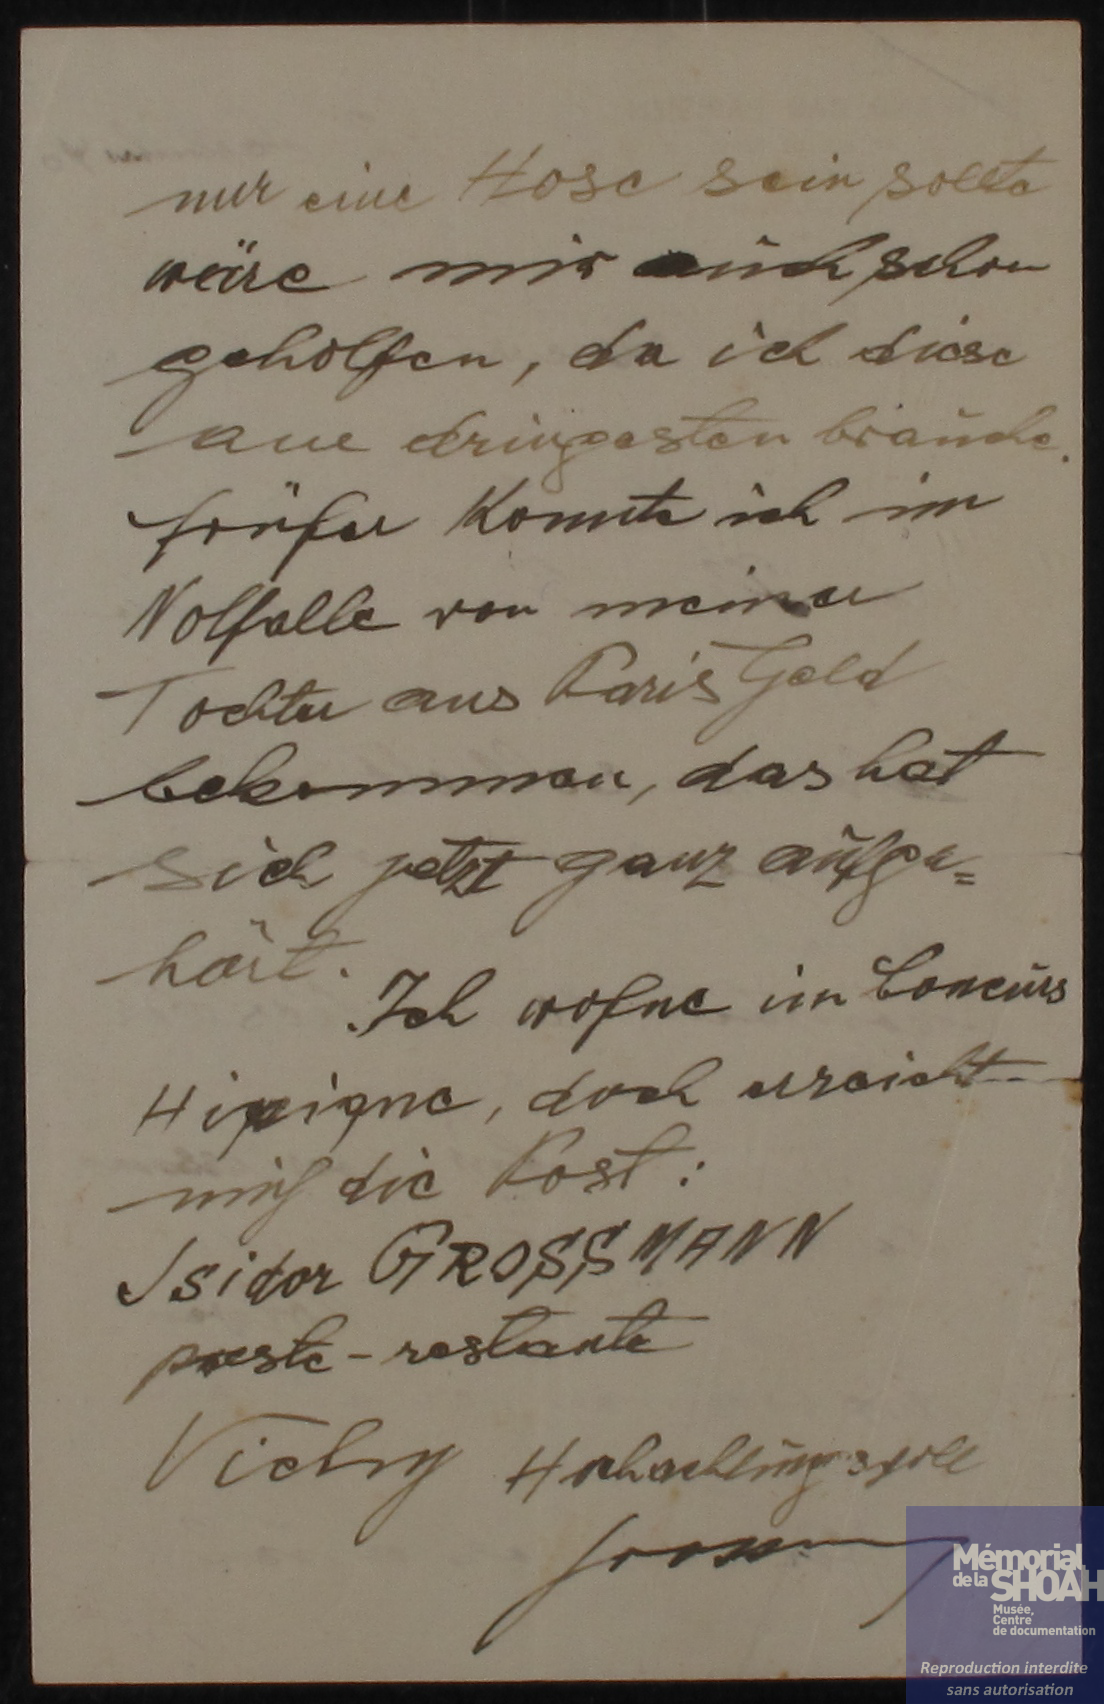 nur eine Hose sein sollte
wäre mir auch schon
geholfen, da ich diese
am dringesten bräuche.
früher konnte ich im
Notfalle von meiner
Tochter aus Paris Geld
bekommen, das hat
sich jetzt ganz aufge=
hört.
Ich wohne im Concurs
Hipique, doch erreicht
mich die Post:
Isidor GROSSMANN
poste-restante
Vichy Hochachtungsvoll
Mémorial
de la SHOAH
Musée,
Centre
de documentation
Reproduction interdite
sans autorisation